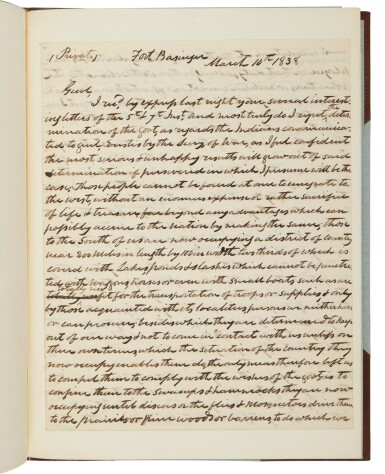 (Private) Fort Basinger
March 10th 1838
Genl,
I recd by express last night your several interest-
ing letters of the 5th & 7th Inst and most truly do I regret the deter-
mination of the govt as regards the Indians communica-
ted to Genl by the Secry of War, as I feel confident
the most serious & unhappy results will grow out of said
determination if persevered in which I presume will be the
case, those people cannot be forced at once to emigrate to
the west, without an enormous expense or rather sacrifice
of life & treasure far beyond any advantages which can
possibly accrue to the nation by making the same, those
to the South of us are now occupying a district of country
near 200 miles in length by 100 in width two thirds of which is
coverd with Lakes ponds & slashes which cannot be penetra-
ted with wagons horses or even with small boats such as are
for the transportation of troops or supplies & only
by those acquainted with its localities persons we neither have
or can procure; besides which they are determined to keep
out of our way & not to come in contact with us unless on
their own terms, which the situation of the country they
now occupy enables them do, the only means therefore left us
to compel them to comply with the wishes of the govt, is to
confine them to the Swamps & hammocks they are now
occupying until disease or the flies & Moscutoes drive them
to the prairies or pine woods or barrens, to do which we